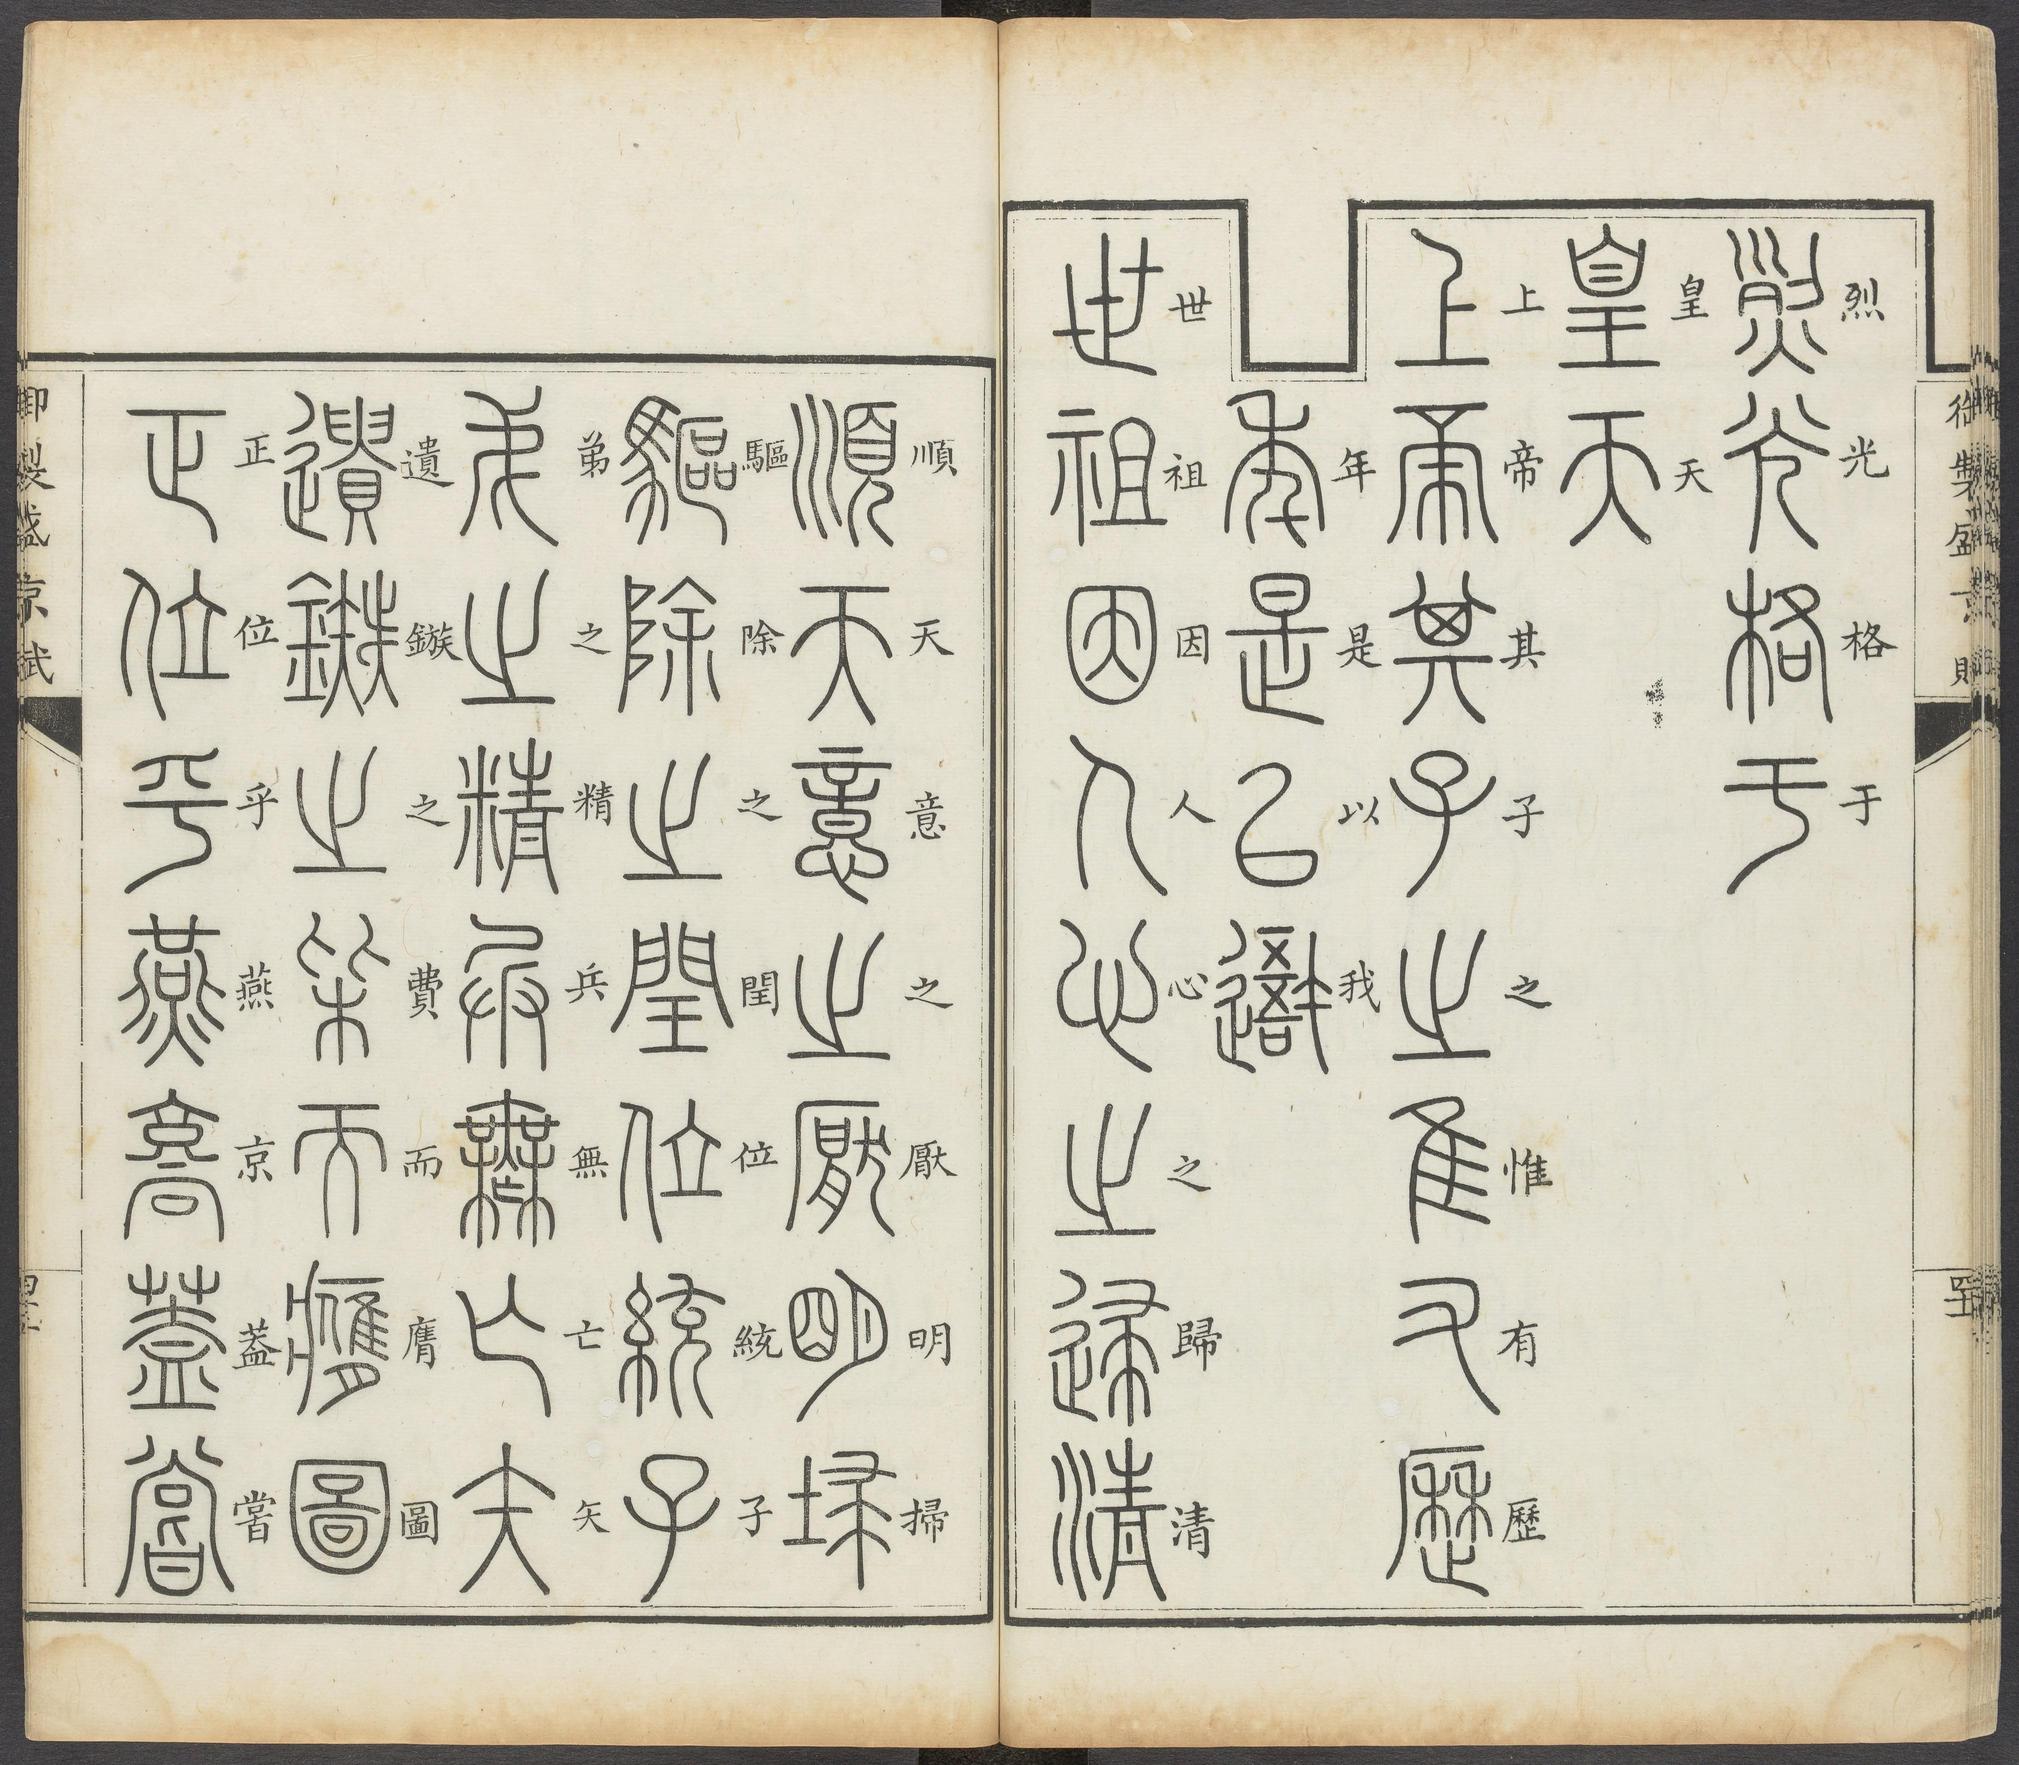 烈光格于
皇天
上帝其子之惟有歷
年是以我
世祖因人心之歸清
順天意之厭明掃
驅除之閏位統子
弟之精兵無亡矢
遺鏃之費而膺圖
正位乎燕京蓋嘗
御製盛京賦